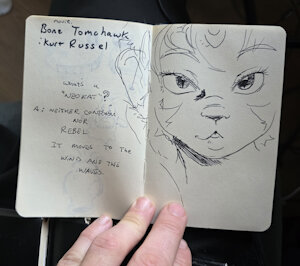 movie
Bone Tomahawk
: Kurt Russel
WHAT'S A
"NEOKAT"?
A: NEITHER CONFORMS
NOR
REBEL
IT MOVES TO THE
WIND AND THE
WAVES